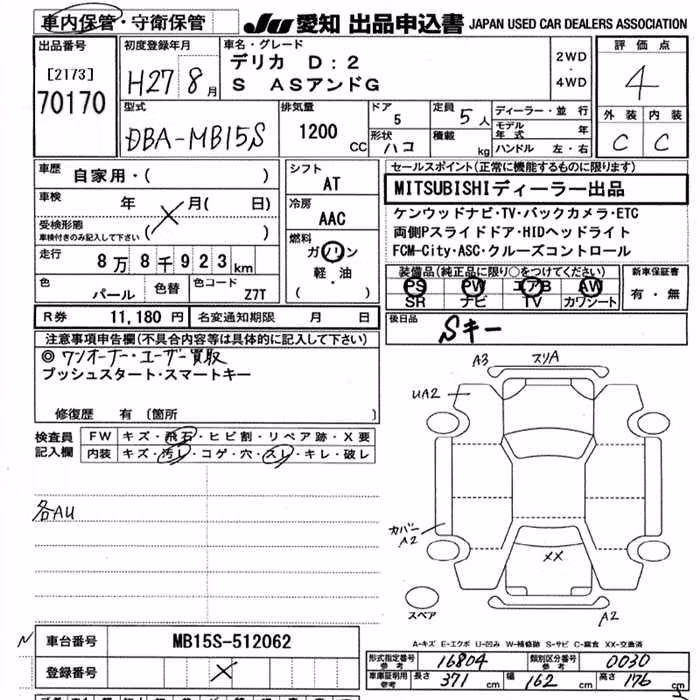 車内保管・守衛保管
JU 愛知 出品申込書 JAPAN USED CAR DEALERS ASSOCIATION
出品番号
[2173]
70170
初度登録年月
H27 8月
車名・グレード
デリカ D:2
S ASアンドG
2WD
・
4WD
評価点
4
外装 内装
C C
型式
DBA-MB15S
排気量
1200
CC
ドア
5
形状
ハコ
定員
5人
積載
kg
ディーラー・並行
モデル年式 年
ハンドル 左・右
車歴
自家用・( )
車検
年 月( 日)
受検形態
車検付きのみ記入して下さい
( )
走行
8万8千923km
色
パール
色替
色コード
Z7T
シフト
AT
冷房
AAC
燃料
ガソリン
軽・油
( )
R券 11,180 円 名変通知期限 月 日
セールスポイント(正常に機能するものに限ります)
MITSUBISHIディーラー出品
ケンウッドナビ・TV・バックカメラ・ETC
両側Pスライドドア・HIDヘッドライト
FCM-City・ASC・クルーズコントロール
装備品(純正品に限り○をつけてください)
PS PW エアB AW
SR ナビ TV カワシート
新車保証書
有・無
後日品
Sキー
注意事項申告欄(不具合内容等は具体的に記入して下さい)
◎ワンオーナー・ユーザー買取
プッシュスタート・スマートキー
修復歴 有 〔箇所
検査員
記入欄
FW キズ・飛石・ヒビ割・リペア跡・X要
内装 キズ・汚レ・コゲ・穴・スレ・キレ・破レ
各AU
A3 スリA
UA2
カバー
A2
XX
スペア
A2
A-キズ E-エクボ U-凹み W-補修跡 S-サビ C-腐食 XX-交換済
N
車台番号 MB15S-512062
登録番号
形式指定番号
参考
16804
類別区分番号
参考
0030
車庫証明用
参考
長さ 371 cm 幅 162 cm 高さ 176 cm